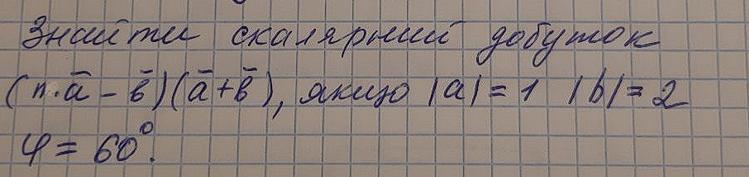 Знайти скалярний добуток
(n·a̅ - b̅)(a̅+b̅), якщо |a|=1 |b|=2
φ = 60°.